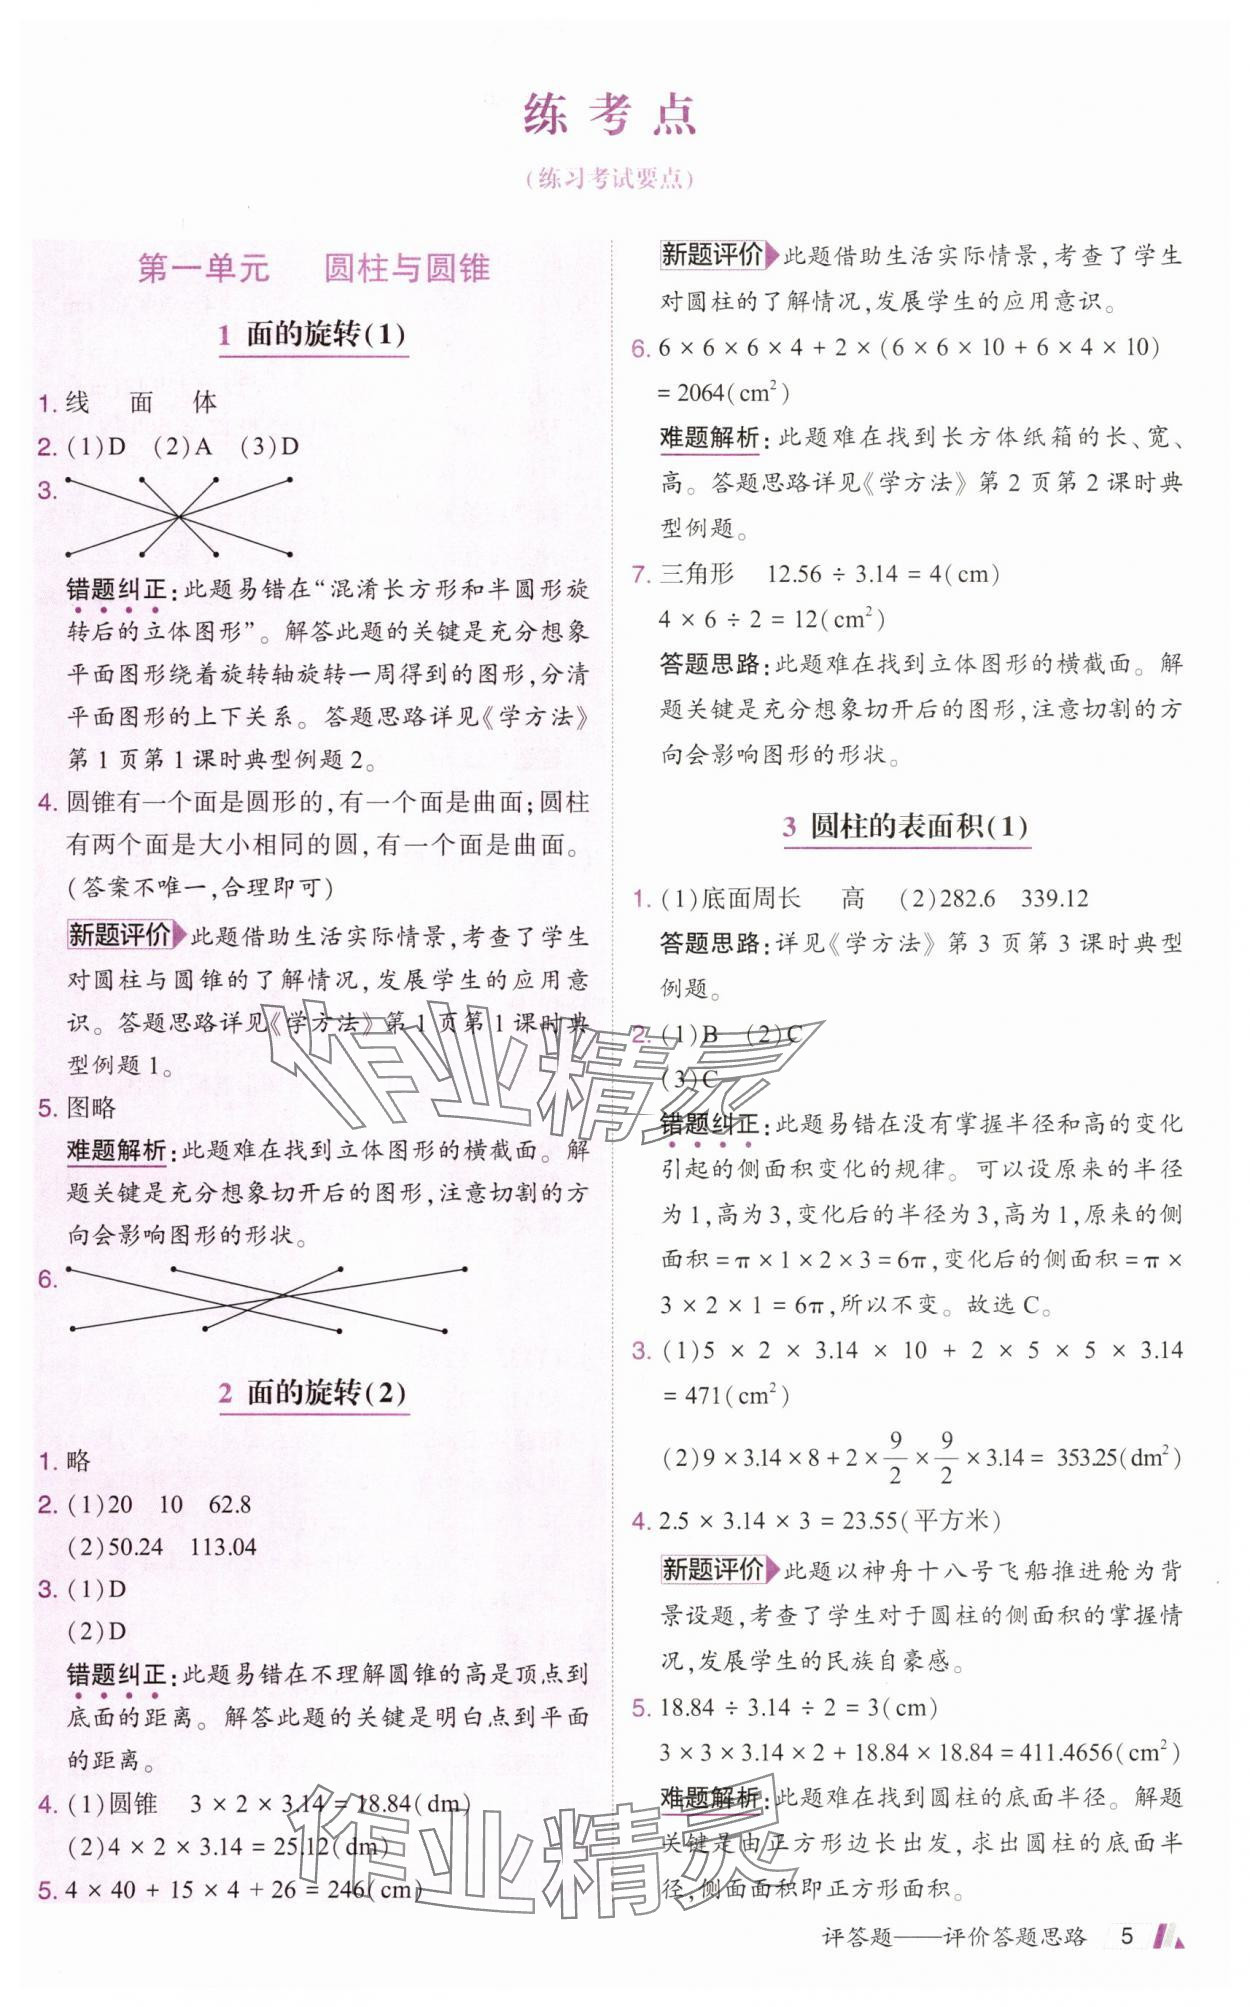 练考点
(练习考试要点)
第一单元 圆柱与圆锥
1 面的旋转(1)
1. 线 面 体
2. (1)D (2)A (3)D
3.
错题纠正:此题易错在“混淆长方形和半圆形旋
转后的立体图形”。解答此题的关键是充分想象
平面图形绕着旋转轴旋转一周得到的图形,分清
平面图形的上下关系。答题思路详见《学方法》
第1页第1课时典型例题2。
4. 圆锥有一个面是圆形的,有一个面是曲面;圆柱
有两个面是大小相同的圆,有一个面是曲面。
(答案不唯一,合理即可)
新题评价 此题借助生活实际情景,考查了学生
对圆柱与圆锥的了解情况,发展学生的应用意
识。答题思路详见《学方法》第1页第1课时典
型例题1。
5. 图略
难题解析:此题难在找到立体图形的横截面。解
题关键是充分想象切开后的图形,注意切割的方
向会影响图形的形状。
6.
2 面的旋转(2)
1. 略
2. (1)20 10 62.8
(2)50.24 113.04
3. (1)D
(2)D
错题纠正:此题易错在不理解圆锥的高是顶点到
底面的距离。解答此题的关键是明白点到平面
的距离。
4. (1)圆锥 3×2×3.14=18.84(dm)
(2)4×2×3.14=25.12(dm)
5. 4×40+15×4+26=246(cm)
新题评价 此题借助生活实际情景,考查了学生
对圆柱的了解情况,发展学生的应用意识。
6. 6×6×6×4+2×(6×6×10+6×4×10)
=2064(cm²)
难题解析:此题难在找到长方体纸箱的长、宽、
高。答题思路详见《学方法》第2页第2课时典
型例题。
7. 三角形 12.56÷3.14=4(cm)
4×6÷2=12(cm²)
答题思路:此题难在找到立体图形的横截面。解
题关键是充分想象切开后的图形,注意切割的方
向会影响图形的形状。
3 圆柱的表面积(1)
1. (1)底面周长 高 (2)282.6 339.12
答题思路:详见《学方法》第3页第3课时典型
例题。
2. (1)B (2)C
(3)C
错题纠正:此题易错在没有掌握半径和高的变化
引起的侧面积变化的规律。可以设原来的半径
为1,高为3,变化后的半径为3,高为1,原来的侧
面积=π×1×2×3=6π,变化后的侧面积=π×
3×2×1=6π,所以不变。故选C。
3. (1)5×2×3.14×10+2×5×5×3.14
=471(cm²)
(2)9×3.14×8+2×9/2×9/2×3.14=353.25(dm²)
4. 2.5×3.14×3=23.55(平方米)
新题评价 此题以神舟十八号飞船推进舱为背
景设题,考查了学生对于圆柱的侧面积的掌握情
况,发展学生的民族自豪感。
5. 18.84÷3.14÷2=3(cm)
3×3×3.14×2+18.84×18.84=411.4656(cm²)
难题解析:此题难在找到圆柱的底面半径。解题
关键是由正方形边长出发,求出圆柱的底面半
径,侧面面积即正方形面积。
评答题——评价答题思路 5
作业精灵
作业精灵